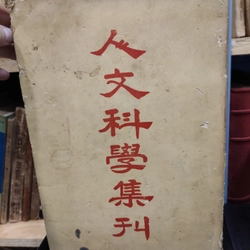 人文科學集刊